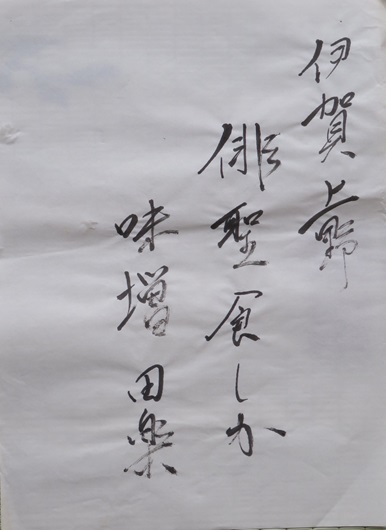 伊賀上野
俳聖食しか
味増田楽